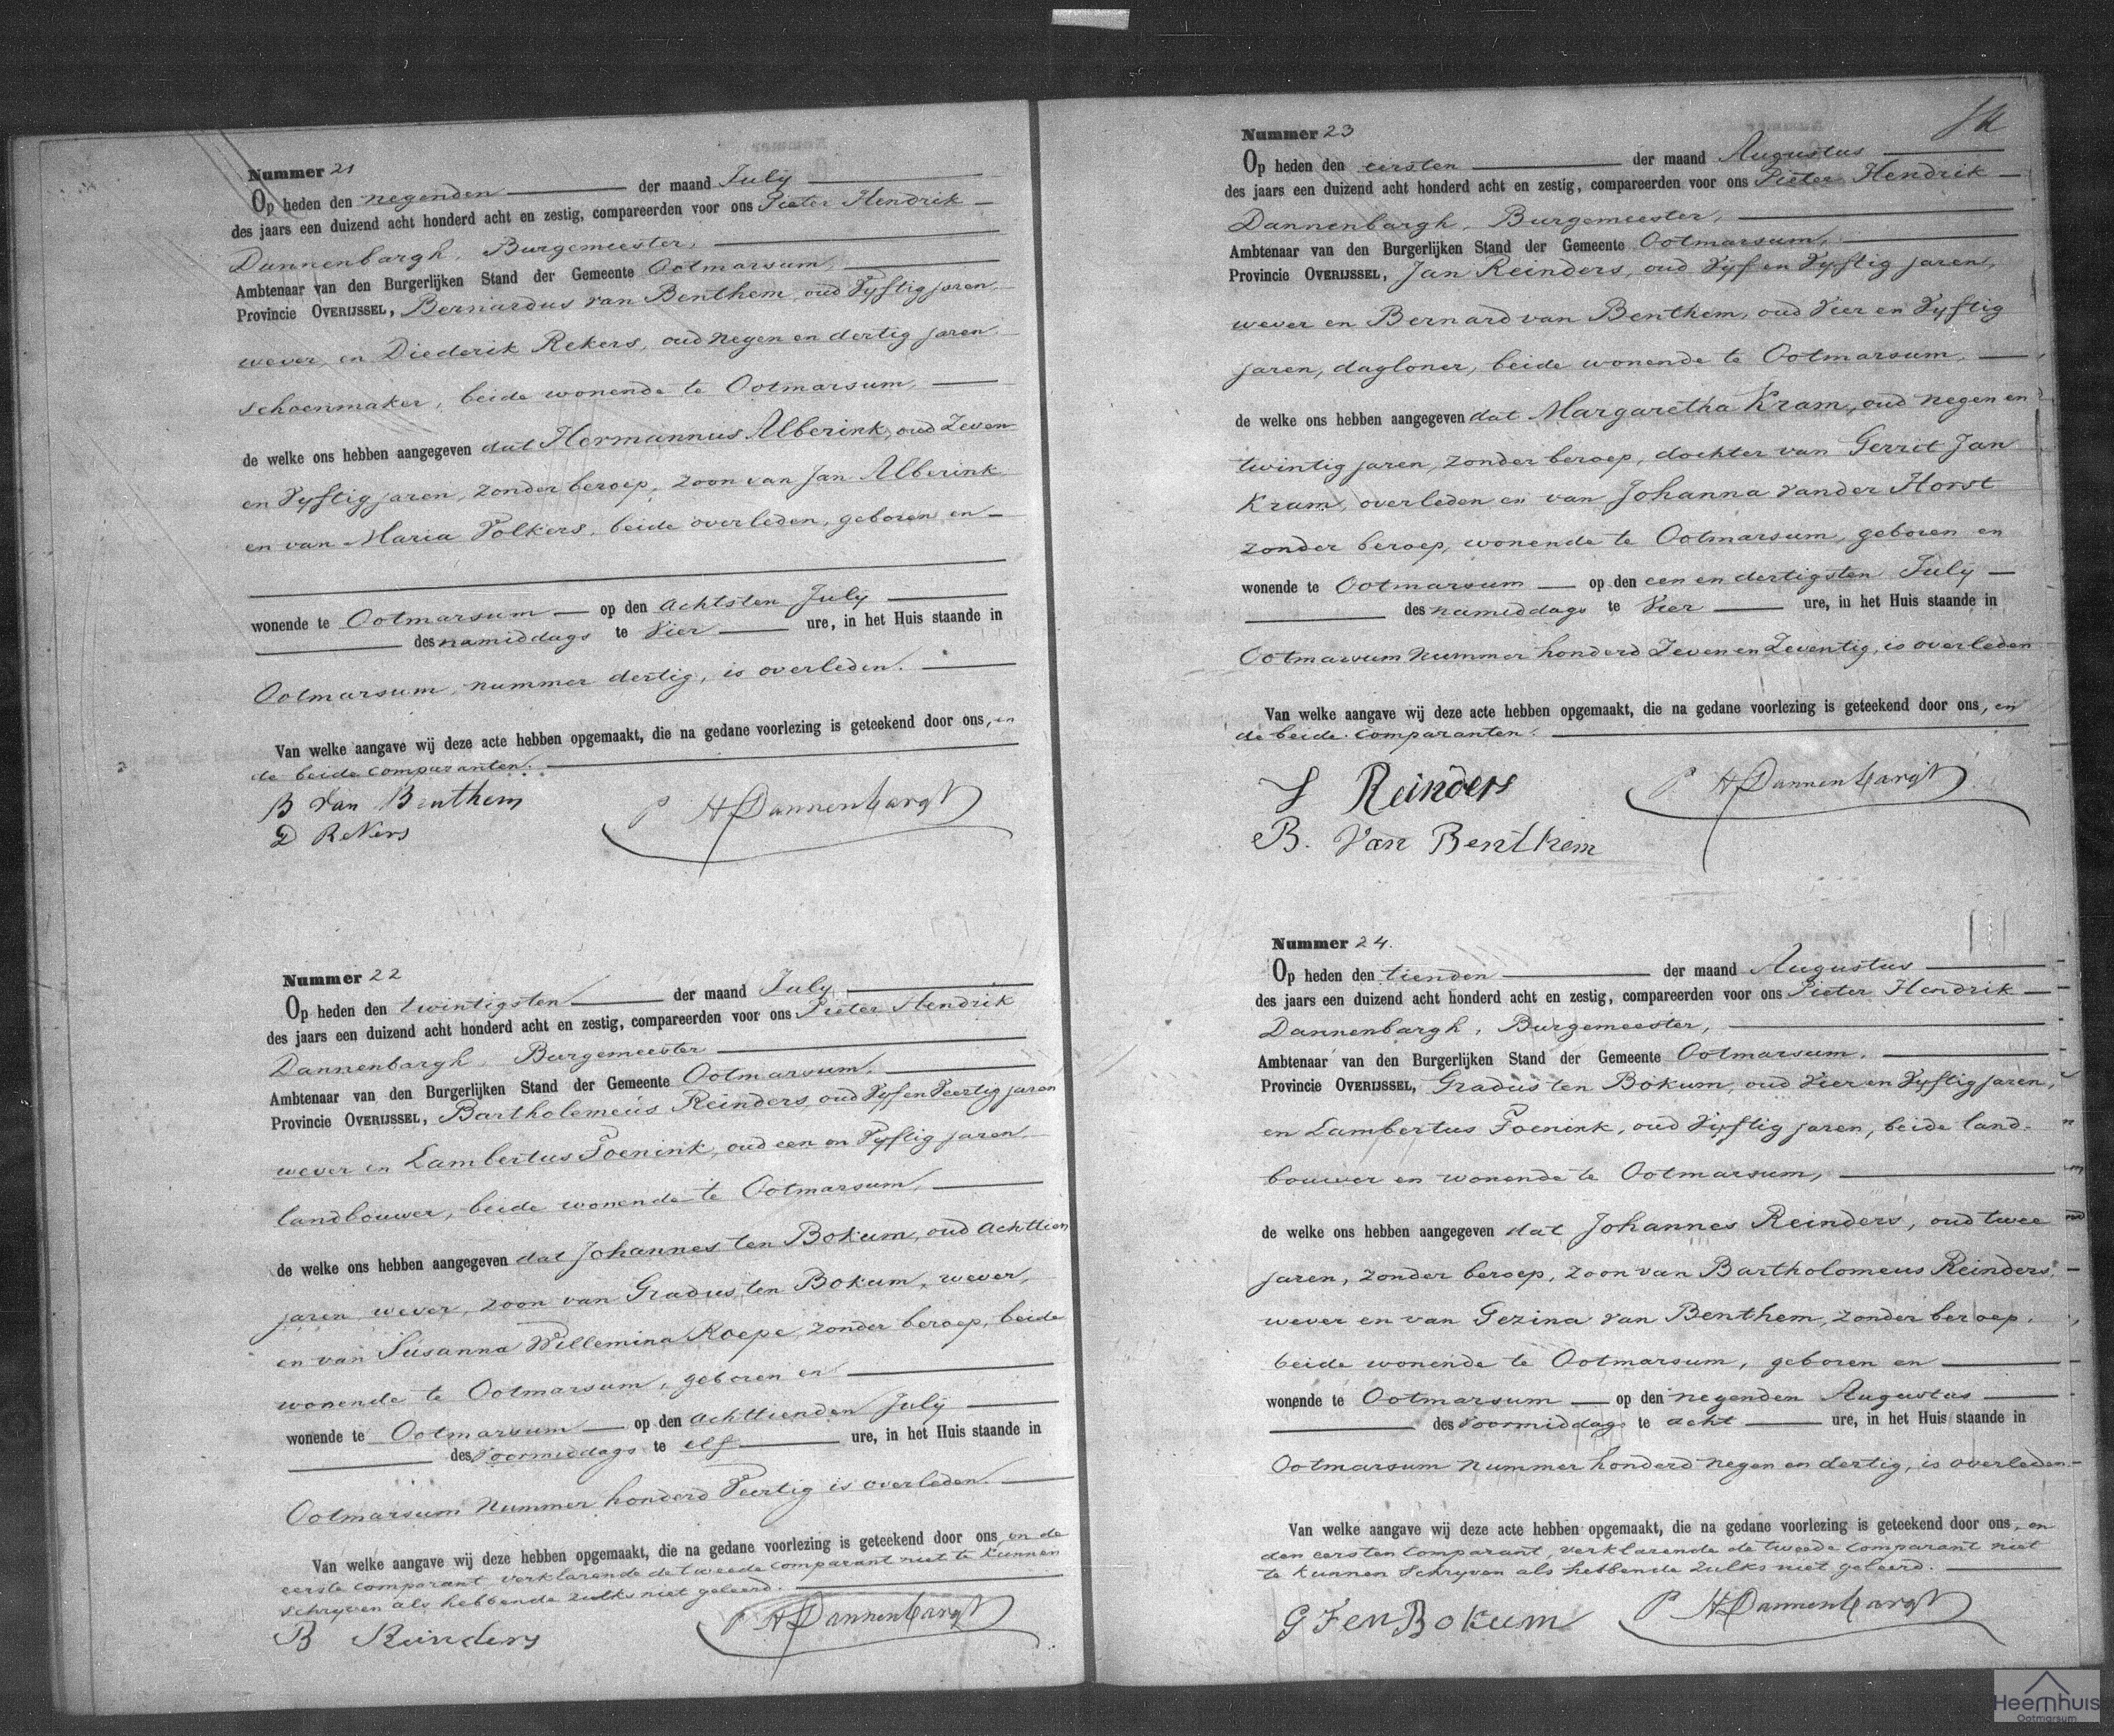 Nummer 21
Op heden den negenden der maand July
des jaars een duizend acht honderd acht en zestig, compareerden voor ons Pieter Hendrik
Dannenbargh, Burgemeester,
Ambtenaar van den Burgerlijken Stand der Gemeente Ootmarsum,
Provincie OVERIJSSEL, Bernardus van Benthem, oud Vyftig jaren,
wever en Diederik Rekers, oud negen en dertig jaren,
schoenmaker, beide wonende te Ootmarsum,
de welke ons hebben aangegeven dat Hermannus Alberink, oud Zeven
en Vyftig jaren, zonder beroep, zoon van Jan Alberink
en van Maria Volkers, beide overleden, geboren en
wonende te Ootmarsum op den achtsten July
des namiddags te Vier ure, in het Huis staande in
Ootmarsum, nummer dertig, is overleden.
Van welke aangave wij deze acte hebben opgemaakt, die na gedane voorlezing is geteekend door ons, en
de beide comparanten.
B Van Benthem
D Rekers
P H Dannenbargh
Nummer 22
Op heden den twintigsten der maand July
des jaars een duizend acht honderd acht en zestig, compareerden voor ons Pieter Hendrik
Dannenbargh, Burgemeester
Ambtenaar van den Burgerlijken Stand der Gemeente Ootmarsum,
Provincie OVERIJSSEL, Bartholemeüs Reinders, oud Vyf en Veertig jaren
wever en Lambertus Foenink, oud een en Vyftig jaren,
landbouwer, beide wonende te Ootmarsum,
de welke ons hebben aangegeven dat Johannes ten Bokum, oud achttien
jaren, wever, zoon van Gradus ten Bokum, wever,
en van Susanna Willemina Roepe, zonder beroep, beide
wonende te Ootmarsum, geboren en
wonende te Ootmarsum op den achttienden July
des Voormiddags te elf ure, in het Huis staande in
Ootmarsum nummer honderd Veertig is overleden.
Van welke aangave wij deze hebben opgemaakt, die na gedane voorlezing is geteekend door ons en de
eerste comparant verklarende de tweede comparant niet te kunnen
schryven als hebbende zulks niet geleerd.
B Reinders
P H Dannenbargh
Nummer 23
Op heden den eersten der maand Augustus
des jaars een duizend acht honderd acht en zestig, compareerden voor ons Pieter Hendrik
Dannenbargh, Burgemeester,
Ambtenaar van den Burgerlijken Stand der Gemeente Ootmarsum,
Provincie OVERIJSSEL, Jan Reinders, oud Vyf en Vyftig jaren,
wever en Bernard van Benthem, oud Vier en Vyftig
jaren, dagloner, beide wonende te Ootmarsum,
de welke ons hebben aangegeven dat Margaretha Kram, oud negen en
twintig jaren, zonder beroep, dochter van Gerrit Jan
Kram, overleden en van Johanna van der Horst
zonder beroep, wonende te Ootmarsum, geboren en
wonende te Ootmarsum op den een en dertigsten July
des namiddags te Vier ure, in het Huis staande in
Ootmarsum nummer honderd Zeven en Zeventig, is overleden
Van welke aangave wij deze acte hebben opgemaakt, die na gedane voorlezing is geteekend door ons, en
de beide comparanten.
J Reinders
B. Van Benthem
P H Dannenbargh
Nummer 24.
Op heden den tienden der maand Augustus
des jaars een duizend acht honderd acht en zestig, compareerden voor ons Pieter Hendrik
Dannenbargh, Burgemeester,
Ambtenaar van den Burgerlijken Stand der Gemeente Ootmarsum,
Provincie OVERIJSSEL, Gradus ten Bokum, oud Vier en Vyftig jaren,
en Lambertus Foenink, oud Vyftig jaren, beide land-
bouwer en wonende te Ootmarsum,
de welke ons hebben aangegeven dat Johannes Reinders, oud twee
jaren, zonder beroep, zoon van Bartholomeus Reinders,
wever en van Gezina van Benthem, zonder beroep,
beide wonende te Ootmarsum, geboren en
wonende te Ootmarsum op den negenden Augustus
des Voormiddags te acht ure, in het Huis staande in
Ootmarsum nummer honderd negen en dertig, is overleden.
Van welke aangave wij deze acte hebben opgemaakt, die na gedane voorlezing is geteekend door ons, en
den eersten Comparant, verklarende de tweede Comparant niet
te kunnen schryven als hebbende zulks niet geleerd.
G Ten Bokum
P H Dannenbargh
Heemhuis
Ootmarsum